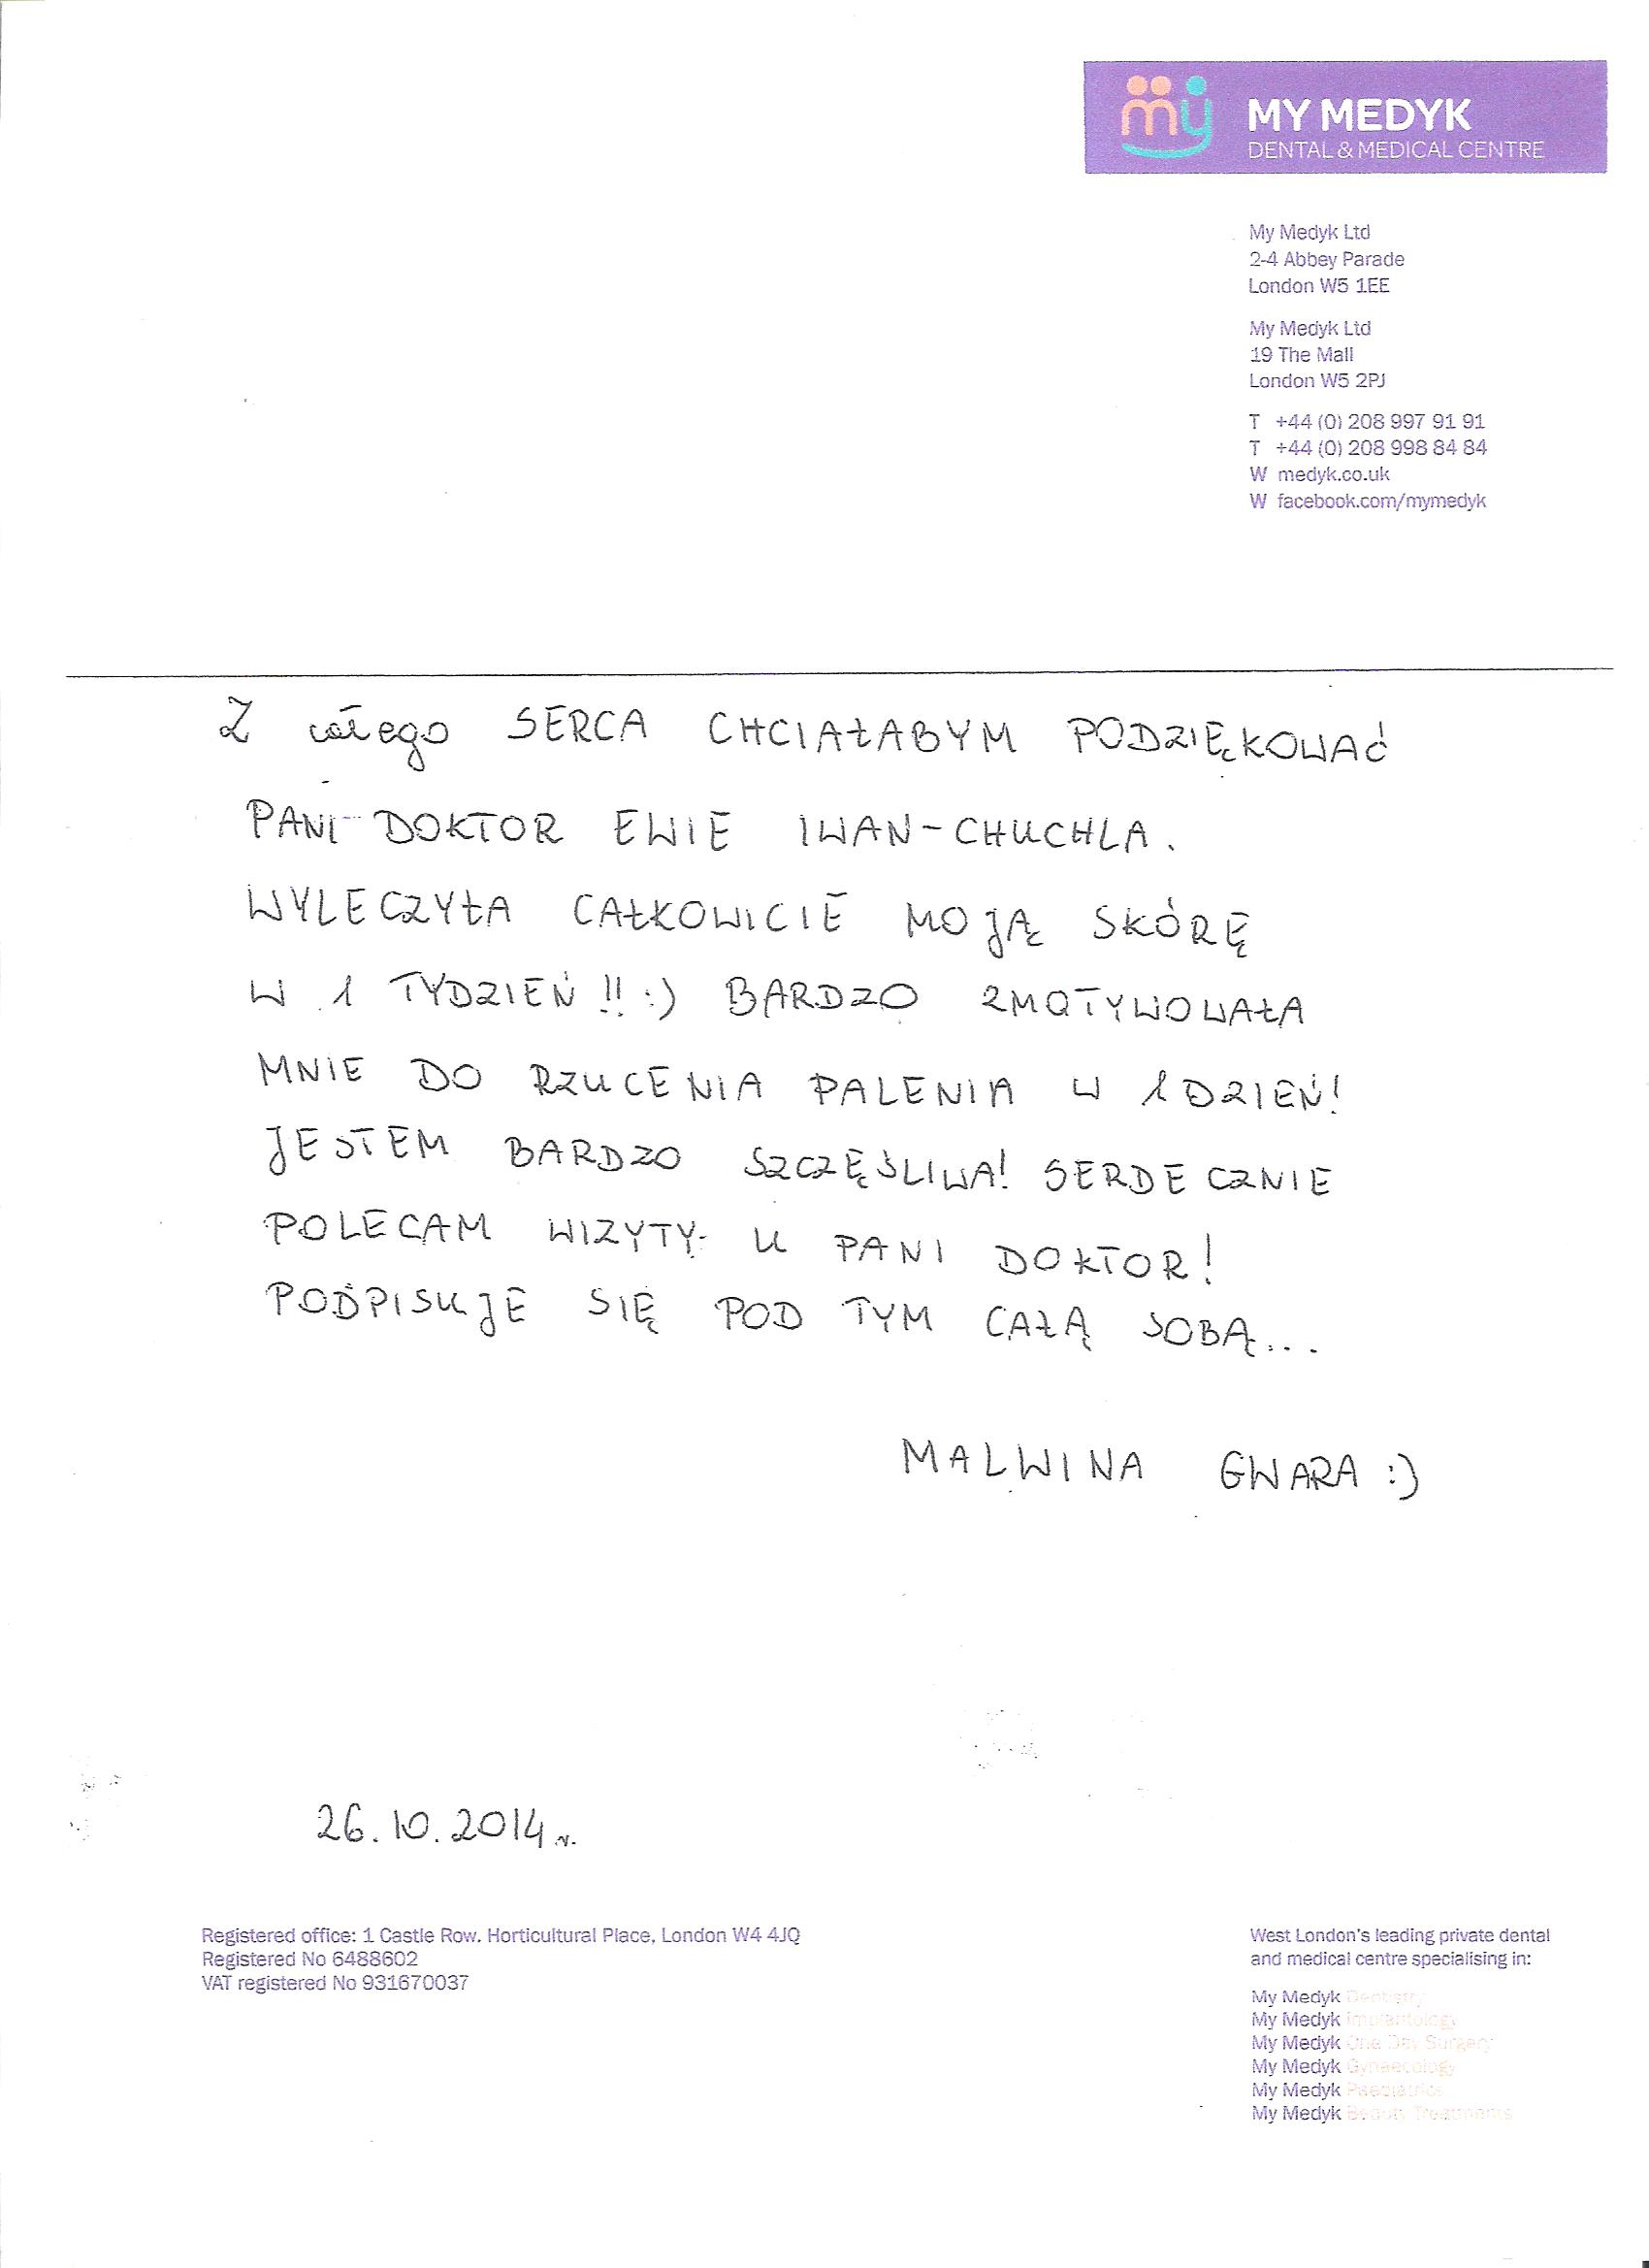 my MY MEDYK
DENTAL & MEDICAL CENTRE
My Medyk Ltd
2-4 Abbey Parade
London W5 1EE
My Medyk Ltd
19 The Mall
London W5 2PJ
T +44 (0) 208 997 91 91
T +44 (0) 208 998 84 84
W medyk.co.uk
W facebook.com/mymedyk
Z całego SERCA CHCIAŁABYM PODZIĘKOWAĆ
PANI DOKTOR EWIE IWAN-CHUCHLA.
WYLECZYŁA CAŁKOWICIE MOJĄ SKÓRĘ
W 1 TYDZIEŃ!! :) BARDZO ZMOTYWOWAŁA
MNIE DO RZUCENIA PALENIA W 1 DZIEŃ!
JESTEM BARDZO SZCZĘŚLIWA! SERDECZNIE
POLECAM WIZYTY U PANI DOKTOR!
PODPISUJE SIĘ POD TYM CAŁĄ SOBĄ...
MALWINA GWARA :)
26.10.2014 r.
Registered office: 1 Castle Row, Horticultural Place, London W4 4JQ
Registered No 6488602
VAT registered No 931670037
West London's leading private dental
and medical centre specialising in:
My Medyk Dentistry
My Medyk Implantology
My Medyk One Day Surgery
My Medyk Gynaecology
My Medyk Paediatrics
My Medyk Beauty Treatments